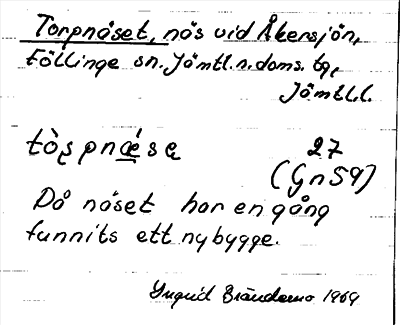 Torpnäset, näs vid Åkersjön,
Föllinge sn. Jämtl. n. doms. tg,
Jämtl.l.
tò̱ʂpnæ̀sę 27
(Gn 59)
På näset har en gång
funnits ett nybygge.
Ingrid 1969